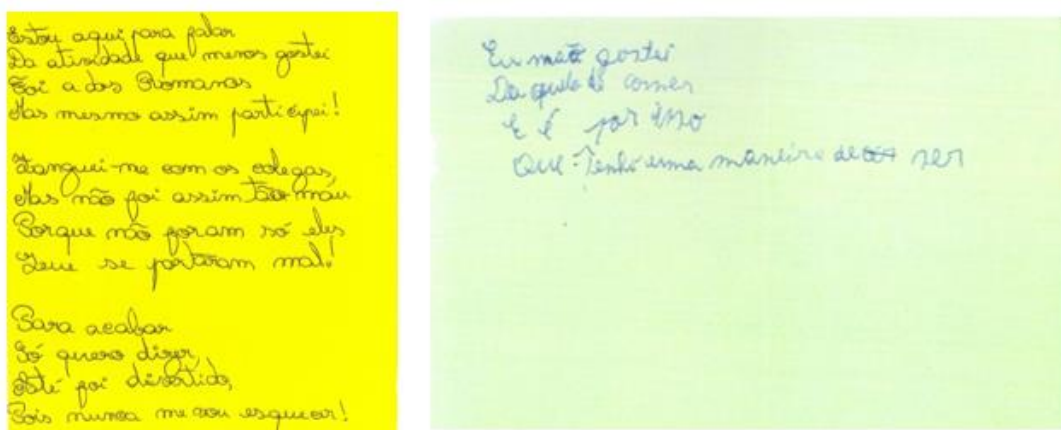 Estou aqui para falar
Da atividade que menos gostei
Foi a dos Romanos
Mas mesmo assim participei!
Zanguei-me com os colegas,
Mas não foi assim tão mau
Porque não foram só eles
Que se portaram mal!
Para acabar
Só quero dizer,
Até foi divertido,
Pois nunca me vou esquecer!
Eu não gostei
Daquilo de comer
E é por isso
Que Tenho uma maneira de ser